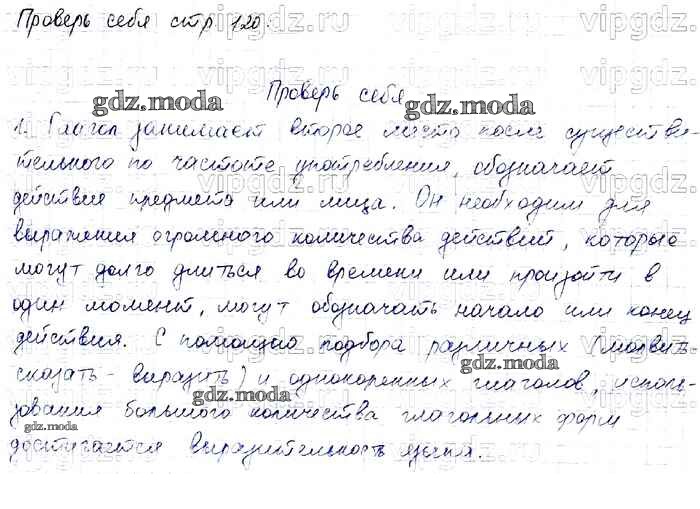 Проверь себя стр 120.
Проверь себя
1. Глагол занимает второе место после существи-
тельного по частоте употребления, обозначает
действие предмета или лица. Он необходим для
выражения огромного количества действий, которые
могут долго длиться во времени или произойти в
один момент, могут обозначать начало или конец
действия. С помощью подбора различных (молвить-
сказать - выразить) и однокоренных глаголов, исполь-
зования большого количества глагольных форм
достигается выразительность языка.